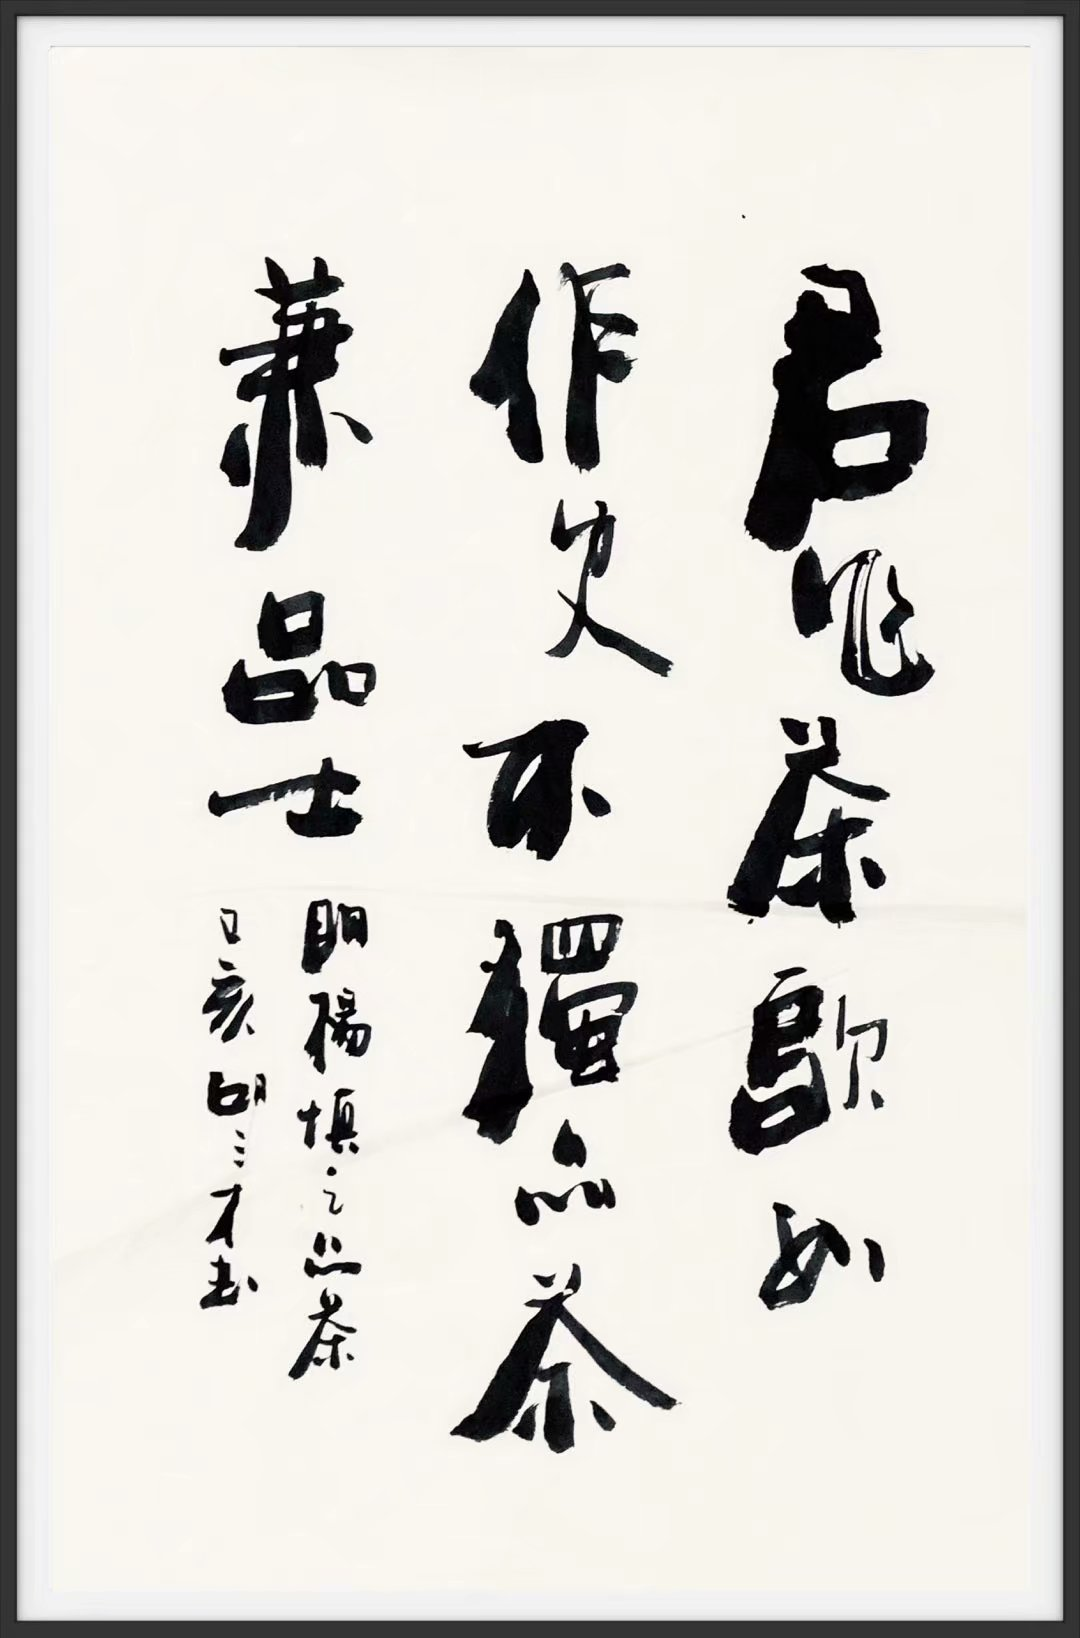 君作茶歌如
作史不獨品茶
兼品士
明楊慎之品茶
己亥胡三才書